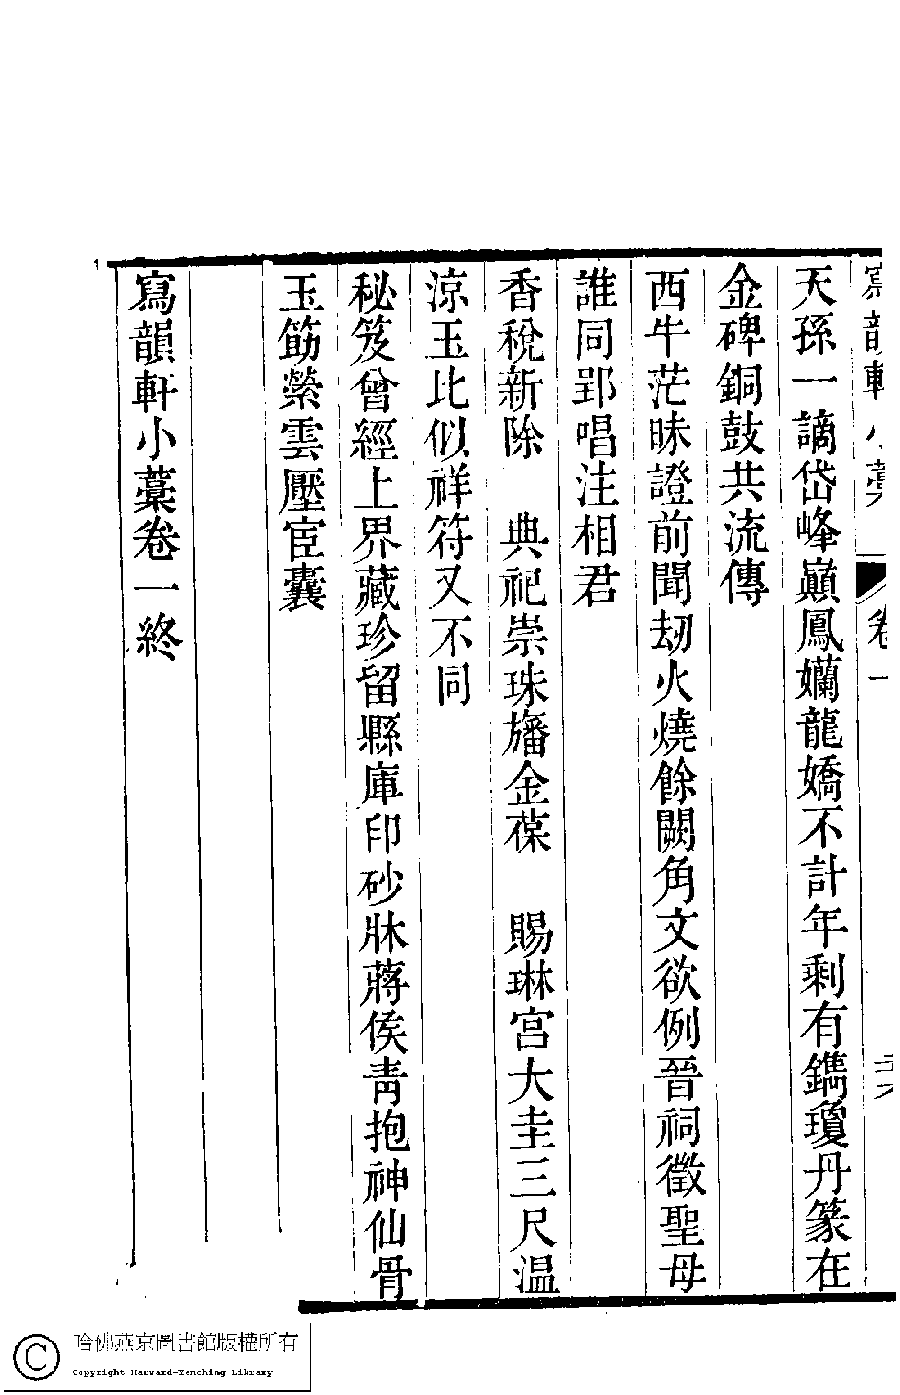 寫韻軒小藁 卷一
天孫一謫岱峰巔鳳孏龍嬌不計年剩有鐫瓊丹篆在
金碑銅鼓共流傳
西牛茫昧證前聞劫火燒餘闕角文欲例晉祠徵聖母
誰同郢唱注相君
香稅新除 典祀崇珠旛金葆 賜琳宮大圭三尺溫
涼玉比似祥符又不同
秘笈曾經上界藏珍留縣庫印砂牀蔣侯青抱神仙骨
玉筯縈雲壓宦囊
寫韻軒小藁卷一終
哈佛燕京圖書館版權所有
Copyright Harvard-Yenching Library